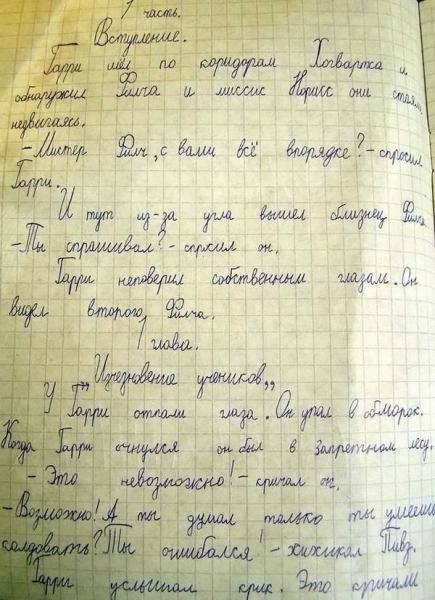 1 часть.
Вступление.
Гарри шёл по коридорам Хогвартса и
обнаружил Филча и миссис Норисс они стояли
недвигаясь.
-Мистер Филч, с вами всё впорядке?-спросил
Гарри.
И тут из-за угла вышел близнец Филча
-Ты спрашивал?-спросил он.
Гарри неповерил собственным глазам. Он
видел второго Филча.
1 глава.
„Изчезновение учеников„
У Гарри отпали глаза. Он упал в обморок.
Когда Гарри очнулся он был в Запретном лесу.
-Это невозможно!-кричал он.
-Возможно! А ты думал только ты умеешь
колдовать? Ты ошибался!-хихикал Пивз.
Гарри услышал крик. Это кричали